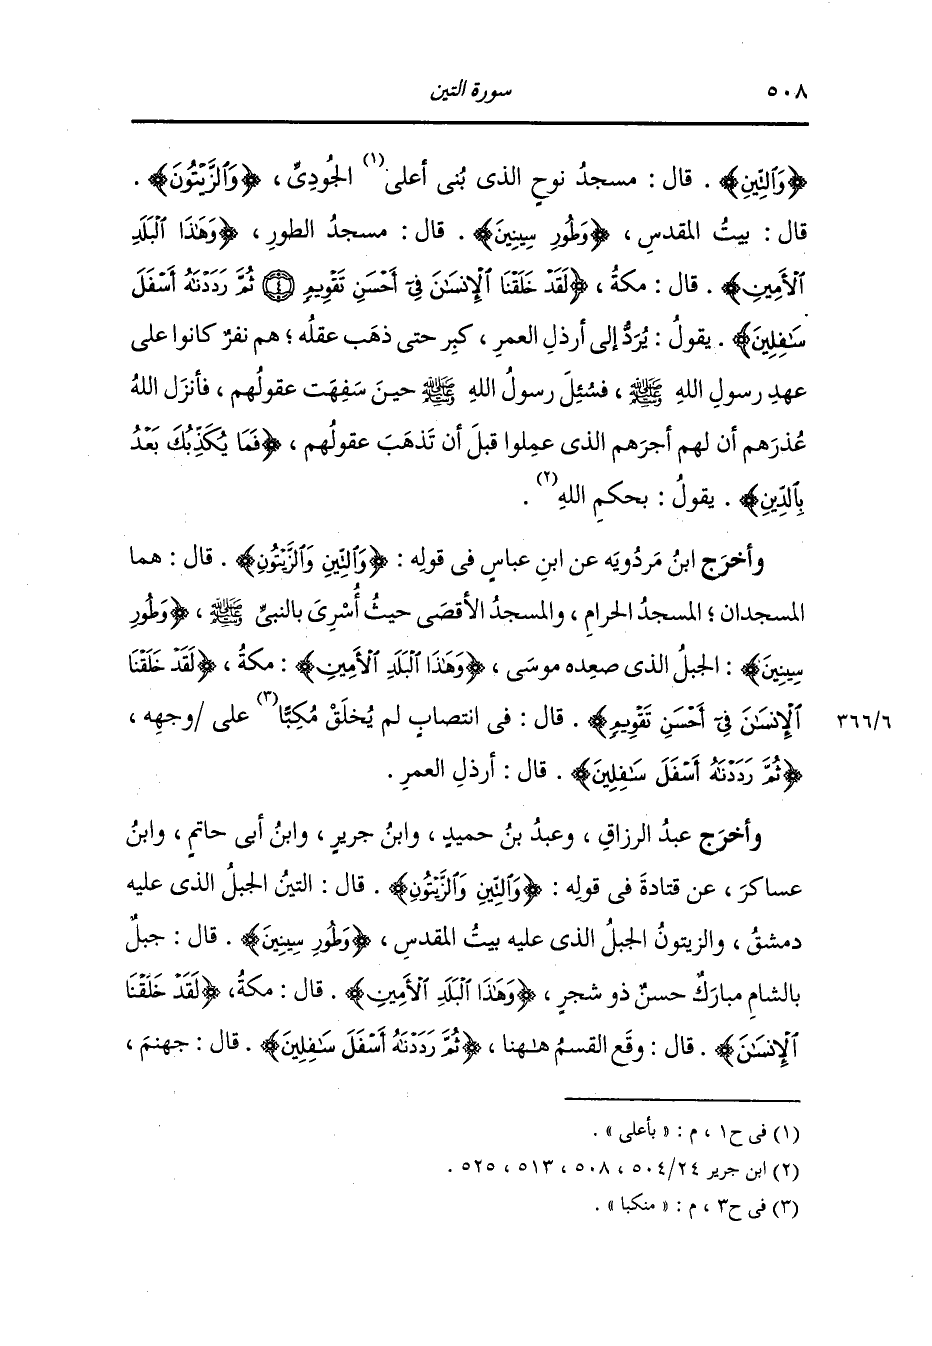 ٥٠٨ سورة التين
﴿وَٱلتِّينِ﴾ . قال : مسجدُ نوحٍ الذى بُنى أعلى(١) الجُودِىِّ ، ﴿وَٱلزَّيْتُونَ﴾ .
قال : بيتُ المقدسِ ، ﴿وَطُورِ سِينِينَ﴾ . قال : مسجدُ الطورِ ، ﴿وَهَٰذَا ٱلْبَلَدِ
ٱلْأَمِينِ﴾ . قال : مكةُ ، ﴿لَقَدْ خَلَقْنَا ٱلْإِنسَٰنَ فِىٓ أَحْسَنِ تَقْوِيمٍ ۝٤ ثُمَّ رَدَدْنَٰهُ أَسْفَلَ
سَٰفِلِينَ﴾ . يقولُ : يُرَدُّ إلى أرذلِ العمرِ ، كبِر حتى ذهَب عقلُه ؛ هم نفرٌ كانوا على
عهدِ رسولِ اللهِ ﷺ ، فسُئِلَ رسولُ اللهِ ﷺ حينَ سَفِهَت عقولُهم ، فأنزَل اللهُ
عُذرَهم أن لهم أجرَهم الذى عمِلوا قبلَ أن تَذهَبَ عقولُهم ، ﴿فَمَا يُكَذِّبُكَ بَعْدُ
بِٱلدِّينِ﴾ . يقولُ : بحكمِ اللهِ(٢) .
وأخرَج ابنُ مَردُويَه عن ابنِ عباسٍ فى قولِه : ﴿وَٱلتِّينِ وَٱلزَّيْتُونِ﴾ . قال : هما
المسجدان ؛ المسجدُ الحرامِ ، والمسجدُ الأقصَى حيثُ أُسْرِىَ بالنبىِّ ﷺ ، ﴿وَطُورِ
سِينِينَ﴾ : الجبلُ الذى صعِده موسَى ، ﴿وَهَٰذَا ٱلْبَلَدِ ٱلْأَمِينِ﴾ : مكةُ ، ﴿لَقَدْ خَلَقْنَا
ٱلْإِنسَٰنَ فِىٓ أَحْسَنِ تَقْوِيمٍ﴾ . قال : فى انتصابٍ لم يُخلَقْ مُكِبًّا(٣) على /وجهِه ، ٣٦٦/٦
﴿ثُمَّ رَدَدْنَٰهُ أَسْفَلَ سَٰفِلِينَ﴾ . قال : أرذلِ العمرِ .
وأخرَج عبدُ الرزاقِ ، وعبدُ بنُ حميدٍ ، وابنُ جريرٍ ، وابنُ أبى حاتمٍ ، وابنُ
عساكرَ ، عن قتادةَ فى قولِه : ﴿وَٱلتِّينِ وَٱلزَّيْتُونِ﴾ . قال : التينُ الجبلُ الذى عليه
دمشقُ ، والزيتونُ الجبلُ الذى عليه بيتُ المقدسِ ، ﴿وَطُورِ سِينِينَ﴾ . قال : جبلٌ
بالشامِ مبارَكٌ حسنٌ ذو شجرٍ ، ﴿وَهَٰذَا ٱلْبَلَدِ ٱلْأَمِينِ﴾ . قال : مكةُ، ﴿لَقَدْ خَلَقْنَا
ٱلْإِنسَٰنَ﴾ . قال : وقَع القسمُ هٰهنا ، ﴿ثُمَّ رَدَدْنَٰهُ أَسْفَلَ سَٰفِلِينَ﴾ . قال : جهنمَ ،
(١) فى ح١ ، م : « بأعلى » .
(٢) ابن جرير ٥٠٤/٢٤ ، ٥٠٨ ، ٥١٣ ، ٥٢٥ .
(٣) فى ح٣ ، م : « منكبا » .